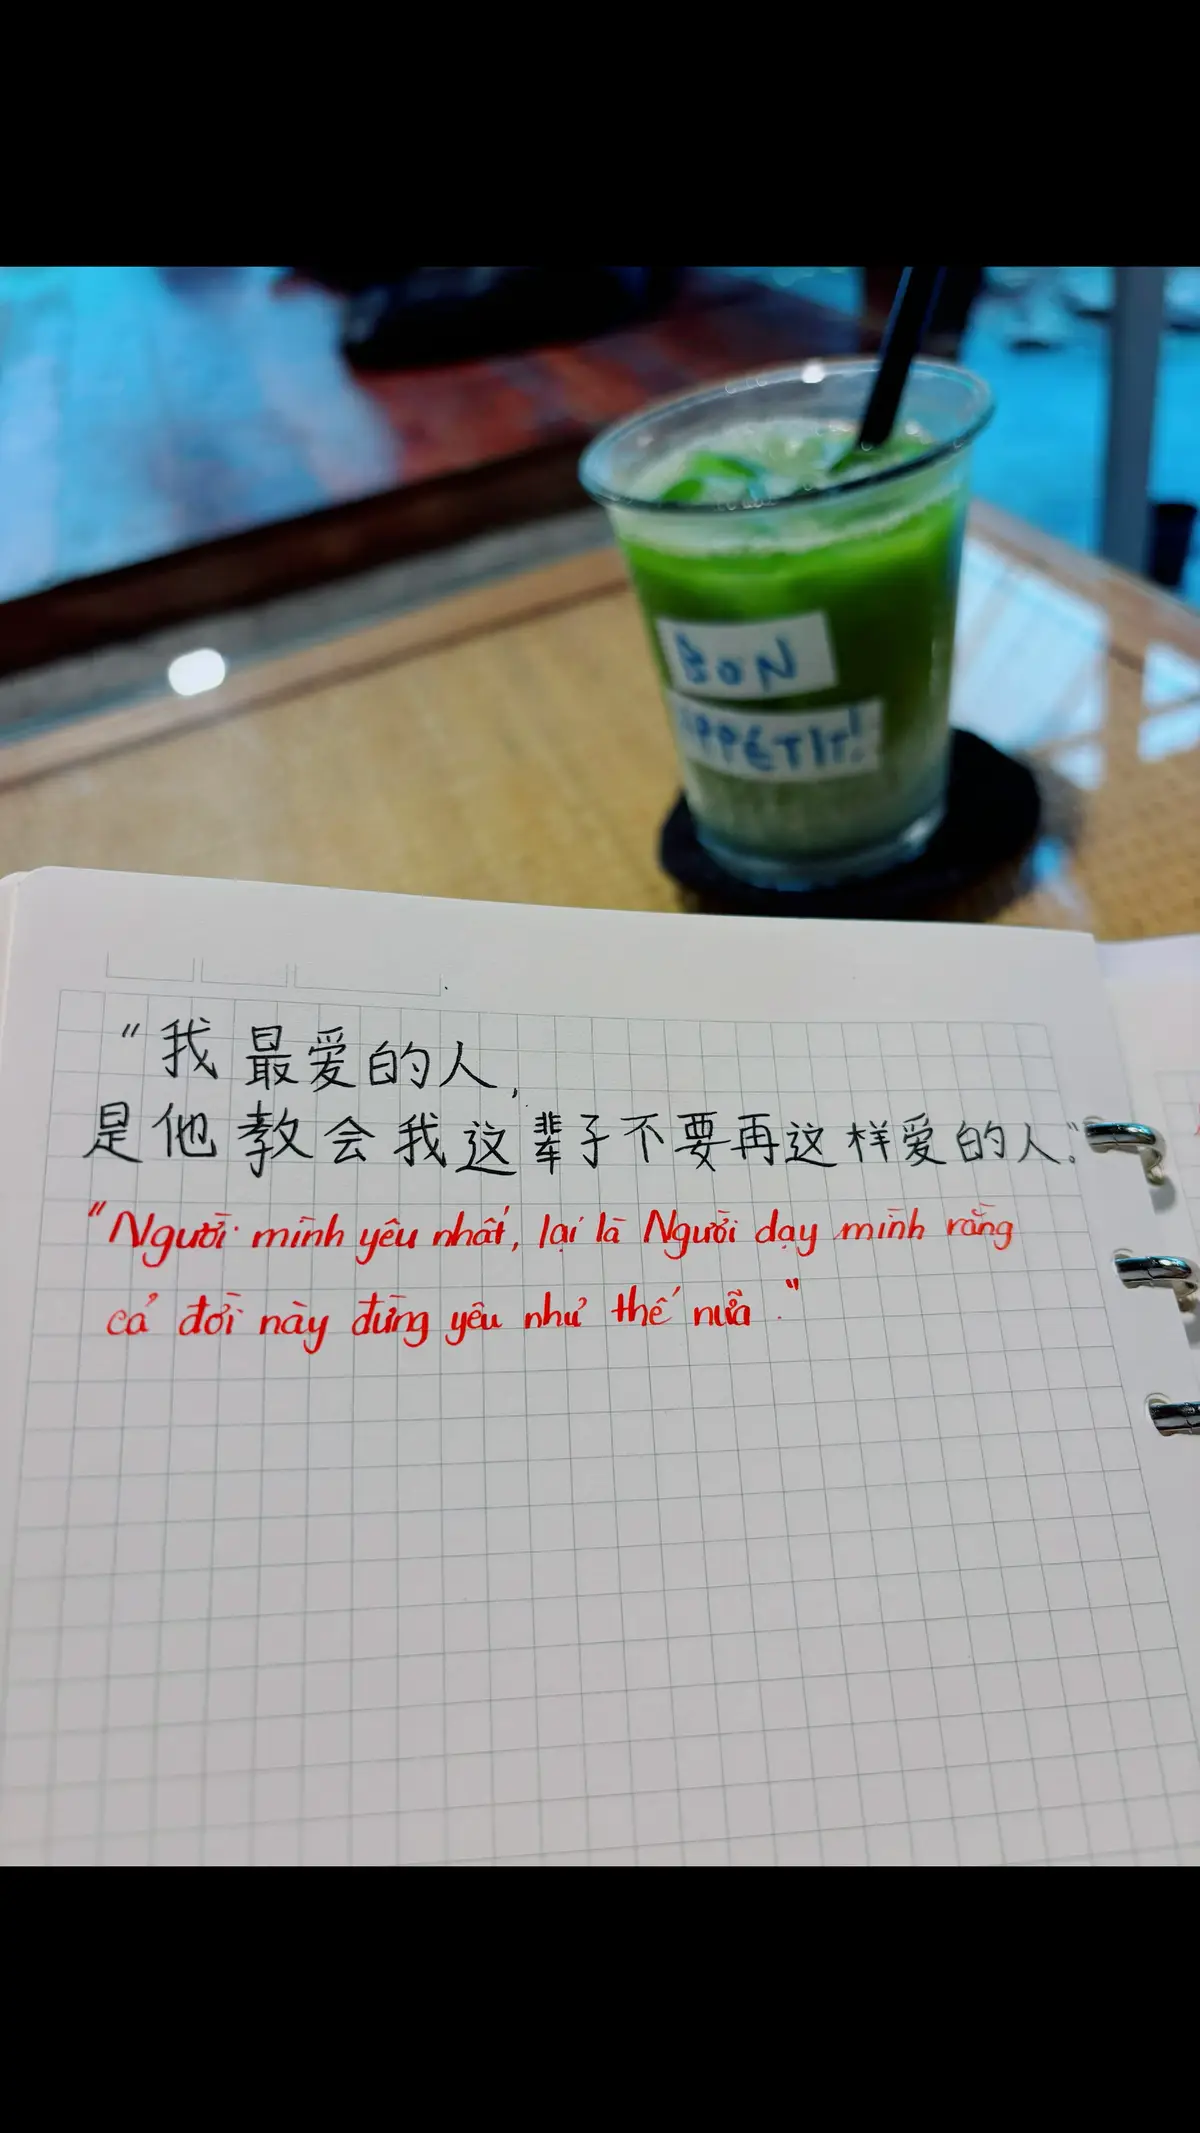 BON
APPÉTIT!
"我最爱的人,
是他教会我这辈子不要再这样爱的人。"
"Người mình yêu nhất, lại là Người dạy mình rằng
cả đời này đừng yêu như thế nữa."